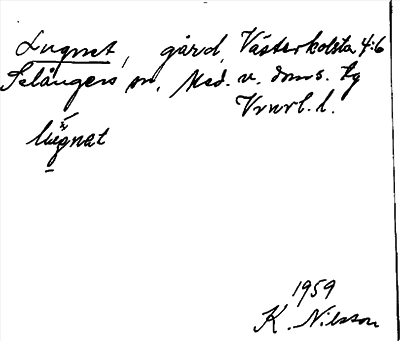 Lugnet, gård, Västerkolsta 4:6
Selångers sn, Med. v. doms. tg
Vrurl. l.
lugnat
1959
K. Nilsson